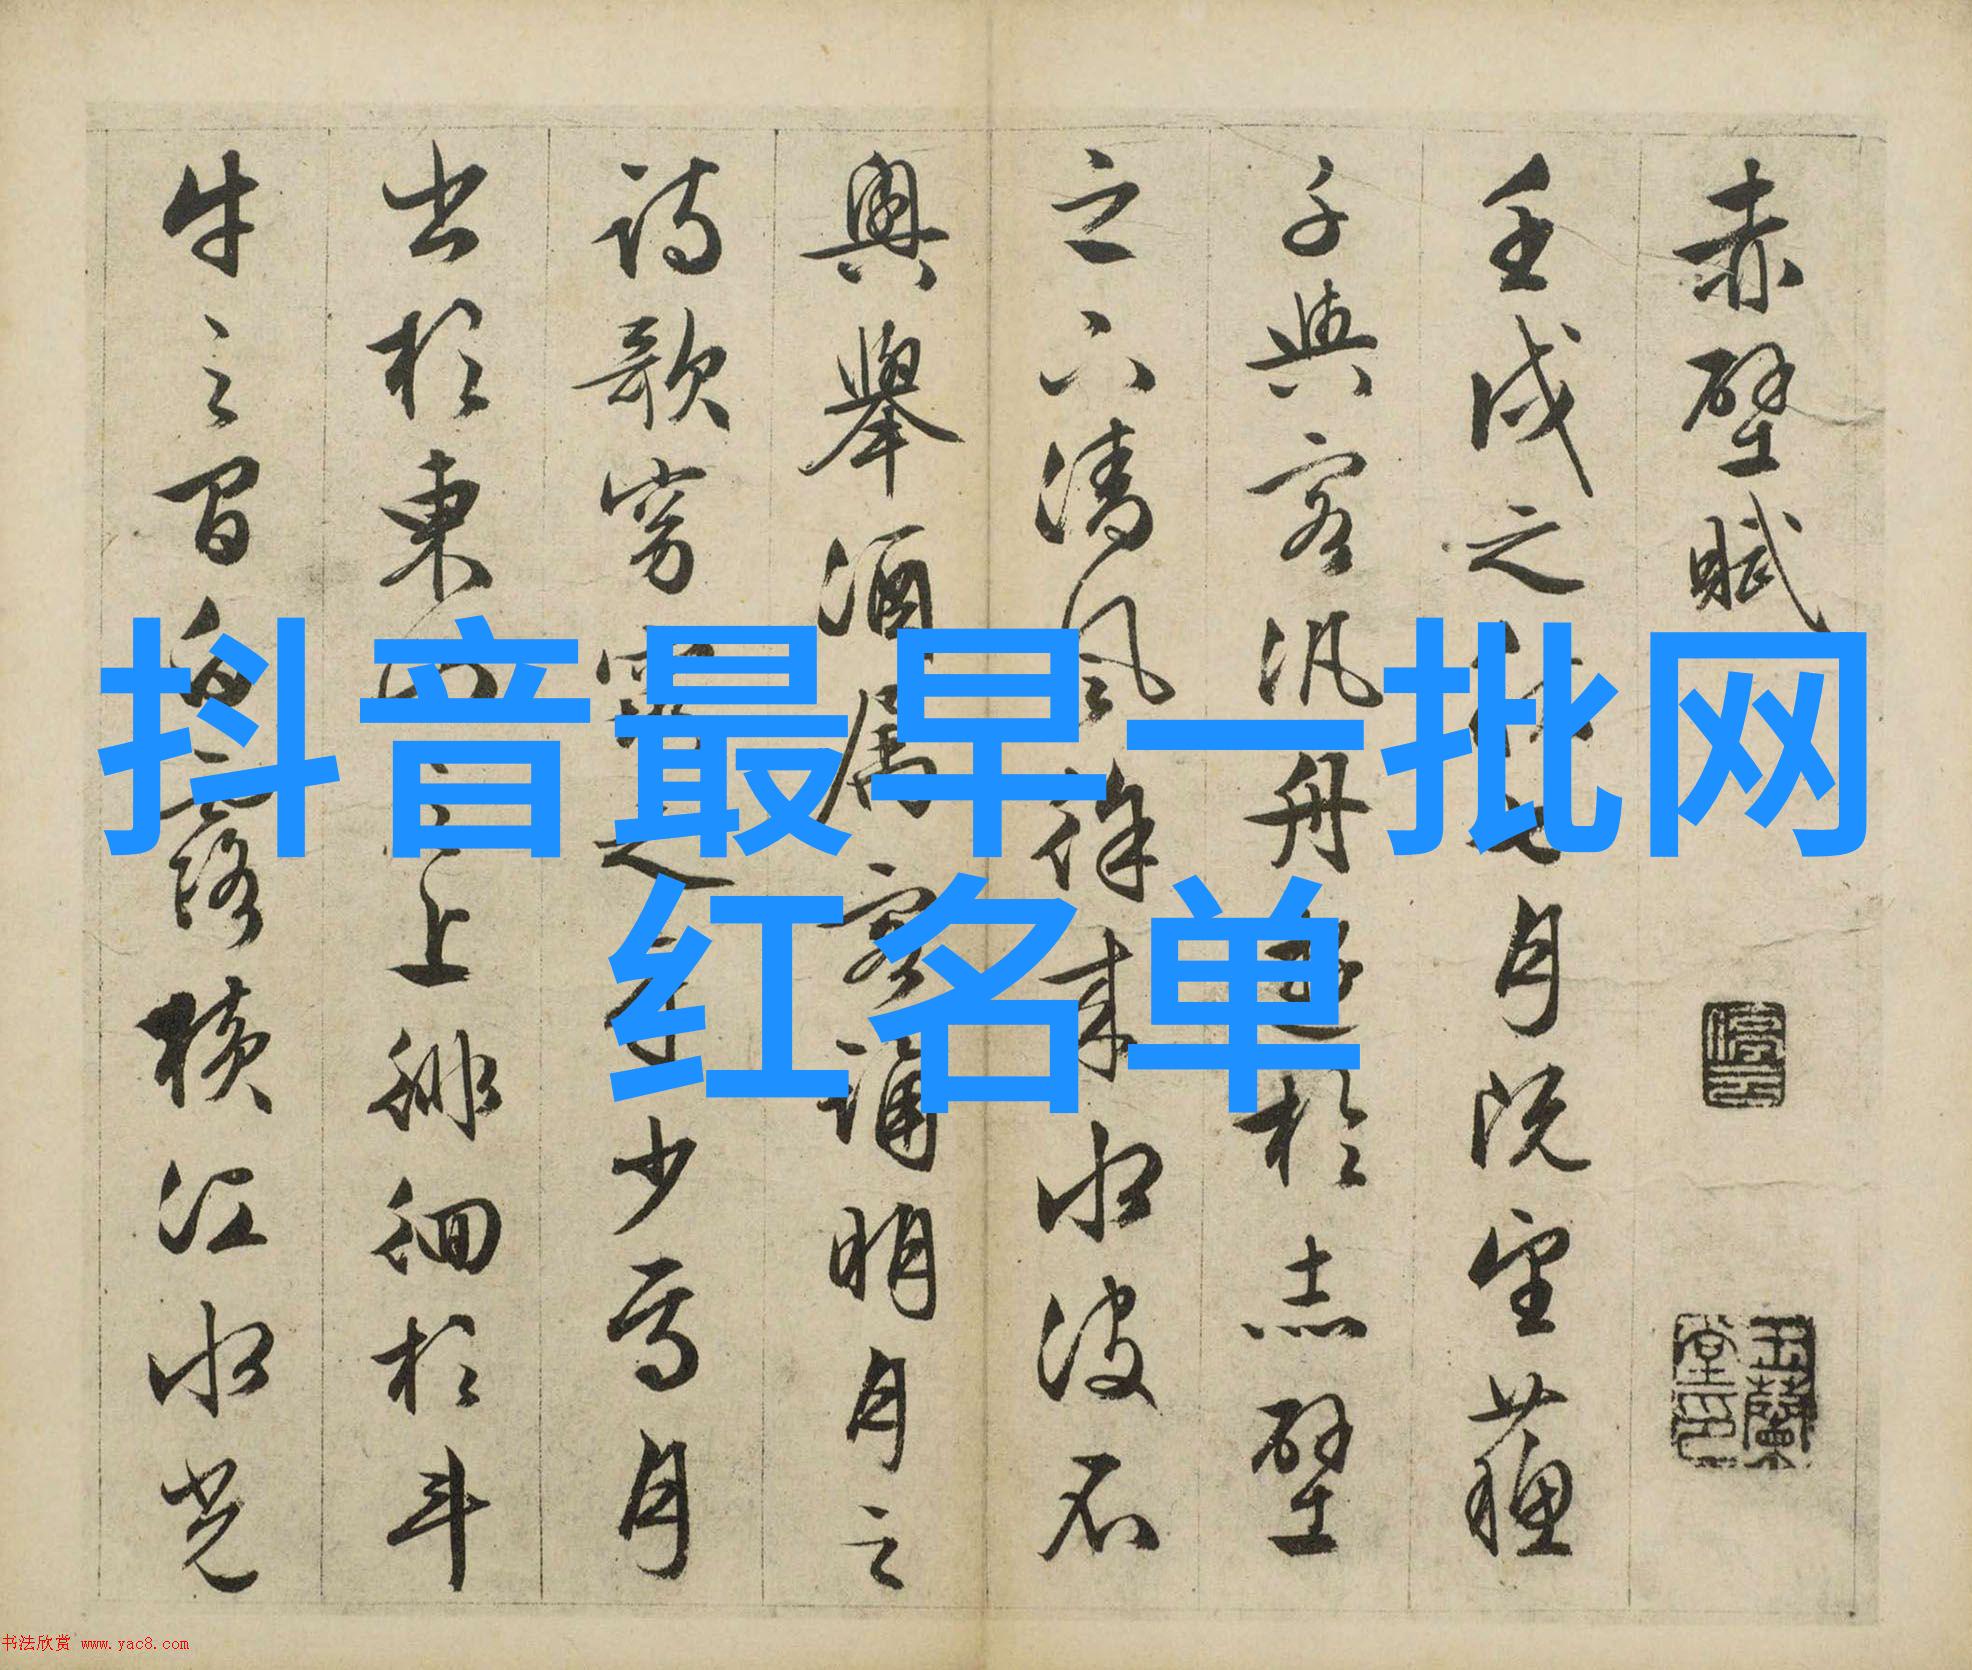 抖音最早一批网
红名单
赤壁賦
壬戌之秋七月既望蘇
子與客汎舟遊於赤壁
之下清風徐來水波不
興舉酒属客誦明月之
詩歌窈窕之章少焉月
出於東山之上徘徊於斗
牛之間白露橫江水光
停云
玉蘭堂印
书法欣赏 www.yac8.com